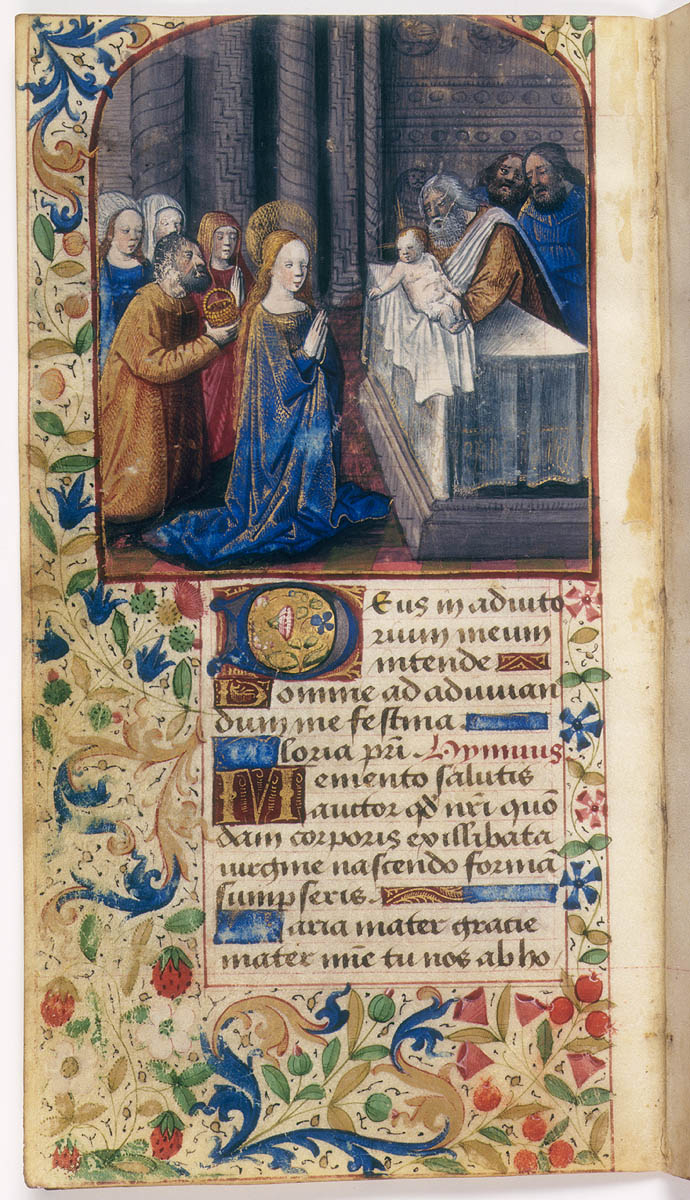 Deus in adiuto
rium meum
intende
Domine ad adiuuan
dum me festina
Gloria pri Hymnus
Memento salutis
auctor qd nri quō
dam corporis ex illibata
uirgine nascendo formā
sumpseris
Maria mater gracie
mater mie tu nos ab ho